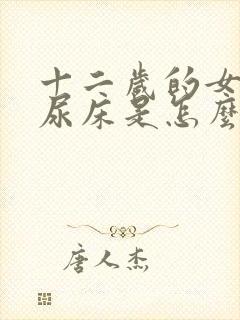 十二歲的女
尿床是怎麼
唐人杰